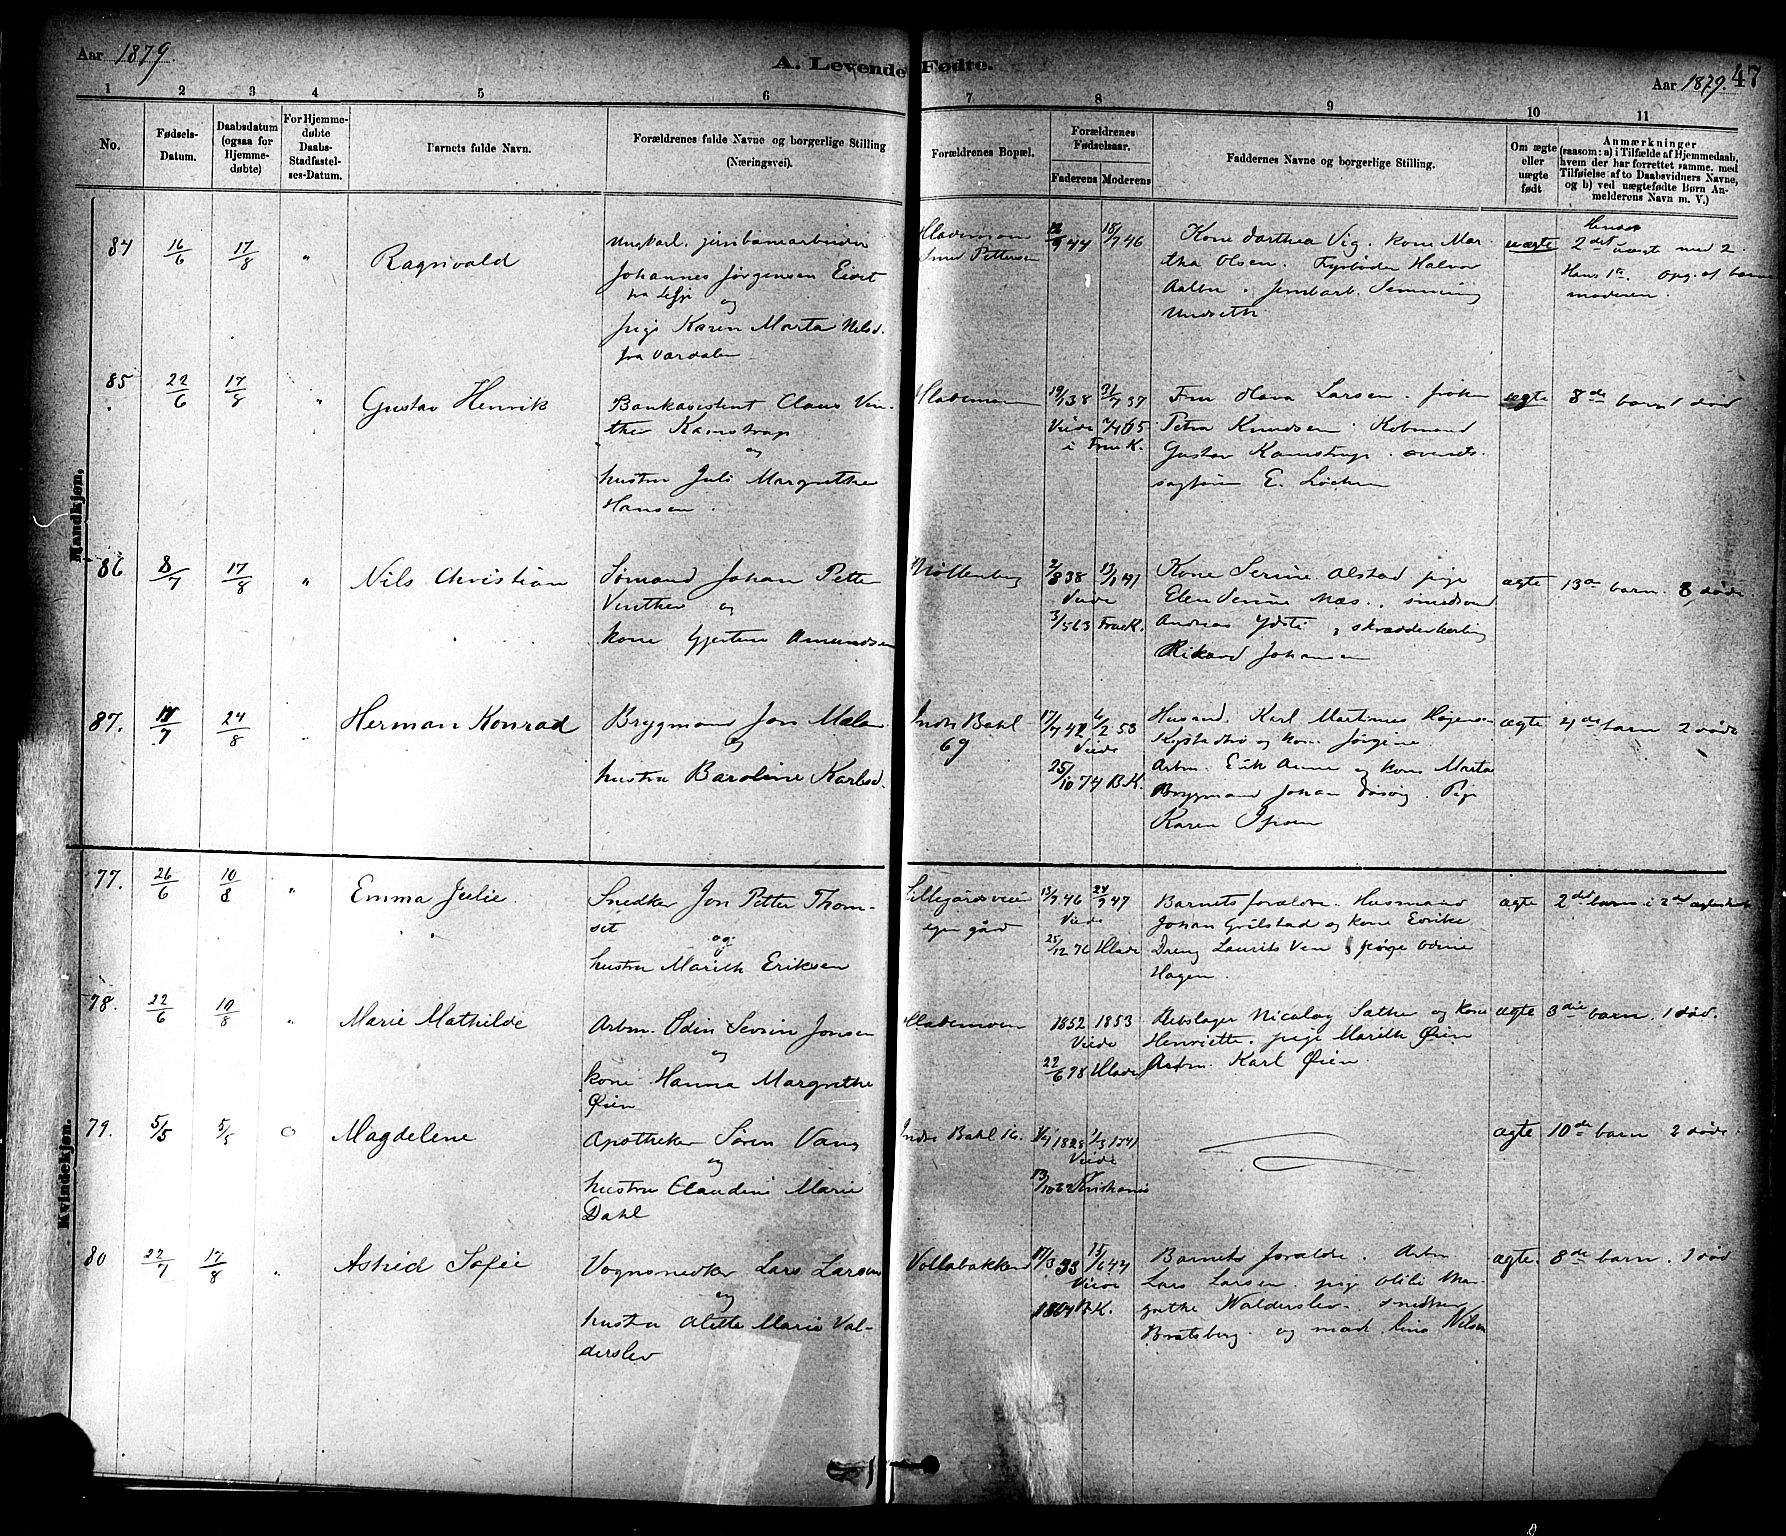 Aar 1879.
A. Levende Fødte.
Aar 1879. 47
1 2 3 4 5 6 7 8 9 10 11
No.
Fødsels-
Datum.
Daabsdatum
(ogsaa for
Hjemme-
døbte)
For Hjemme-
døbte
Daabs-
Stadfæstel-
ses-Datum.
Barnets fulde Navn.
Forældrenes fulde Navne og borgerlige Stilling
(Næringsvei).
Forældrenes Bopæl.
Forældrenes
Fødselsaar.
Faderens Moderens
Faddernes Navne og borgerlige Stilling.
Om ægte
eller
uægte
født
Anmærkninger
(saasom: a) i Tilfælde af Hjemmedaab,
hvem der har forrettet samme, med
Tilføielse af to Daabsvidners Navne,
og b) ved uægtefødte Børn An-
melderens Navn m. V.)
Mandkjøn.
84 16/6 17/8 " Ragnvald
Ungkarl, jernbanearbeider
Johannes Jørgensen
og
pige Karen Marta Nilsd.
fra Værdalen
Lademoen
Petersen
44 18/7 46
Kone Dorthea Vig. kone Mar-
tha Olsen. Fyrbøder Halvor
Jernbarb.
Undseth
uægte
2det uægt med 2.
Hans 1te. Opg. af barne
moderen.
85 22/6 17/8 " Gustav Henrik
Bankassistent Claus Vin-
ther Kamstrup
og
hustru Juli Margrethe
Hansen.
Lademoen
19/1 38 31/7 37
Viede 65
i Frue K.
Fru Olava Larsen. frøken
Petra Knudsen. Kobmand
Gustav Kamstrup. overrets-
sagfører E. Løchen
ægte 8de barn 1 død
86 8/7 17/8 " Nils Christian
Sømand Johan Petter
Vinther og
kone Gjertine Amundsen
Møllenberg
2/8 38 13/1 41
Viede
3/5 63 Frue K.
Kone Serine Alstad pige
Elen Serine Næs. smedsvend
Andreas Ydsti, skrædderlærling
Rikard Johansen
ægte 13de barn. 8 døde.
87. 17/7 24/8 " Herman Konrad
Brygmand Jon Mælen
og
hustru Baroline Karlsd.
Indr. Bakl.
69
17/7 42 6/2 53
Viede
25/10 74 B.K.
Husmd. Karl Martinus
og kone Jørgine
Arbm. Erik Aune og kone Marta
Brygmand Johan Pige
Karen
ægte 4de barn 2 døde.
Kvindekjøn.
77. 26/6 10/8 " Emma Julie
Snedker Jon Petter Thom-
set
og
hustru Marith Eriksen
Lillegårdsveien
egen gård
13/7 46 47
Viede
25/12 76 Hlade
Barnets forældre. Husmand
Johan Grilstad og kone Edrike
Dreng Laurits Ven & pige Odine
Hagen.
ægte 2det barn i 2det ægteskab
78. 22/6 10/8 " Marie Mathilde
Arbm. Odin Sevrin Jonsen
og
kone Hanna Margrethe
Øien
Hlademoen
1852 1853
Viede
22/6 78 Hlade
Rebslager Nicolay Sæther og kone
Henriette. pige Marith Øien
Arbm. Karl Øien.
ægte 3die barn. 1 død.
79. 5/5 5/5 O Magdelene
Apotheker Søren Vang
og
hustru Claudine Marie
Dahl
Indre Bakl 16.
1828 1/3 1741
Viede
13/10 62 Kristiania
ægte 10de barn 2 døde.
80 22/7 17/8 " Astrid Sofie
Vognsnedker Lars Larsen
og
hustru Alette Marie Val-
derslev
Vollabakken
17/3 33 15/6 44
Viede
1864 B.K.
Barnets forældre. Arbm
Lars Larsen. pige Otilie Mar-
grethe Walderslev. snedker
Bratsberg. og mad. Lina Nilsen
ægte. 8de barn. 1 død